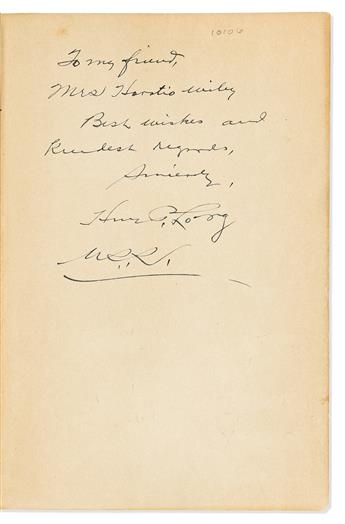 10106
To my friend,
Mrs Horatio Wiley
Best wishes and
Kindest regards,
Sincerely,
Huey P. Long
U.S.S.